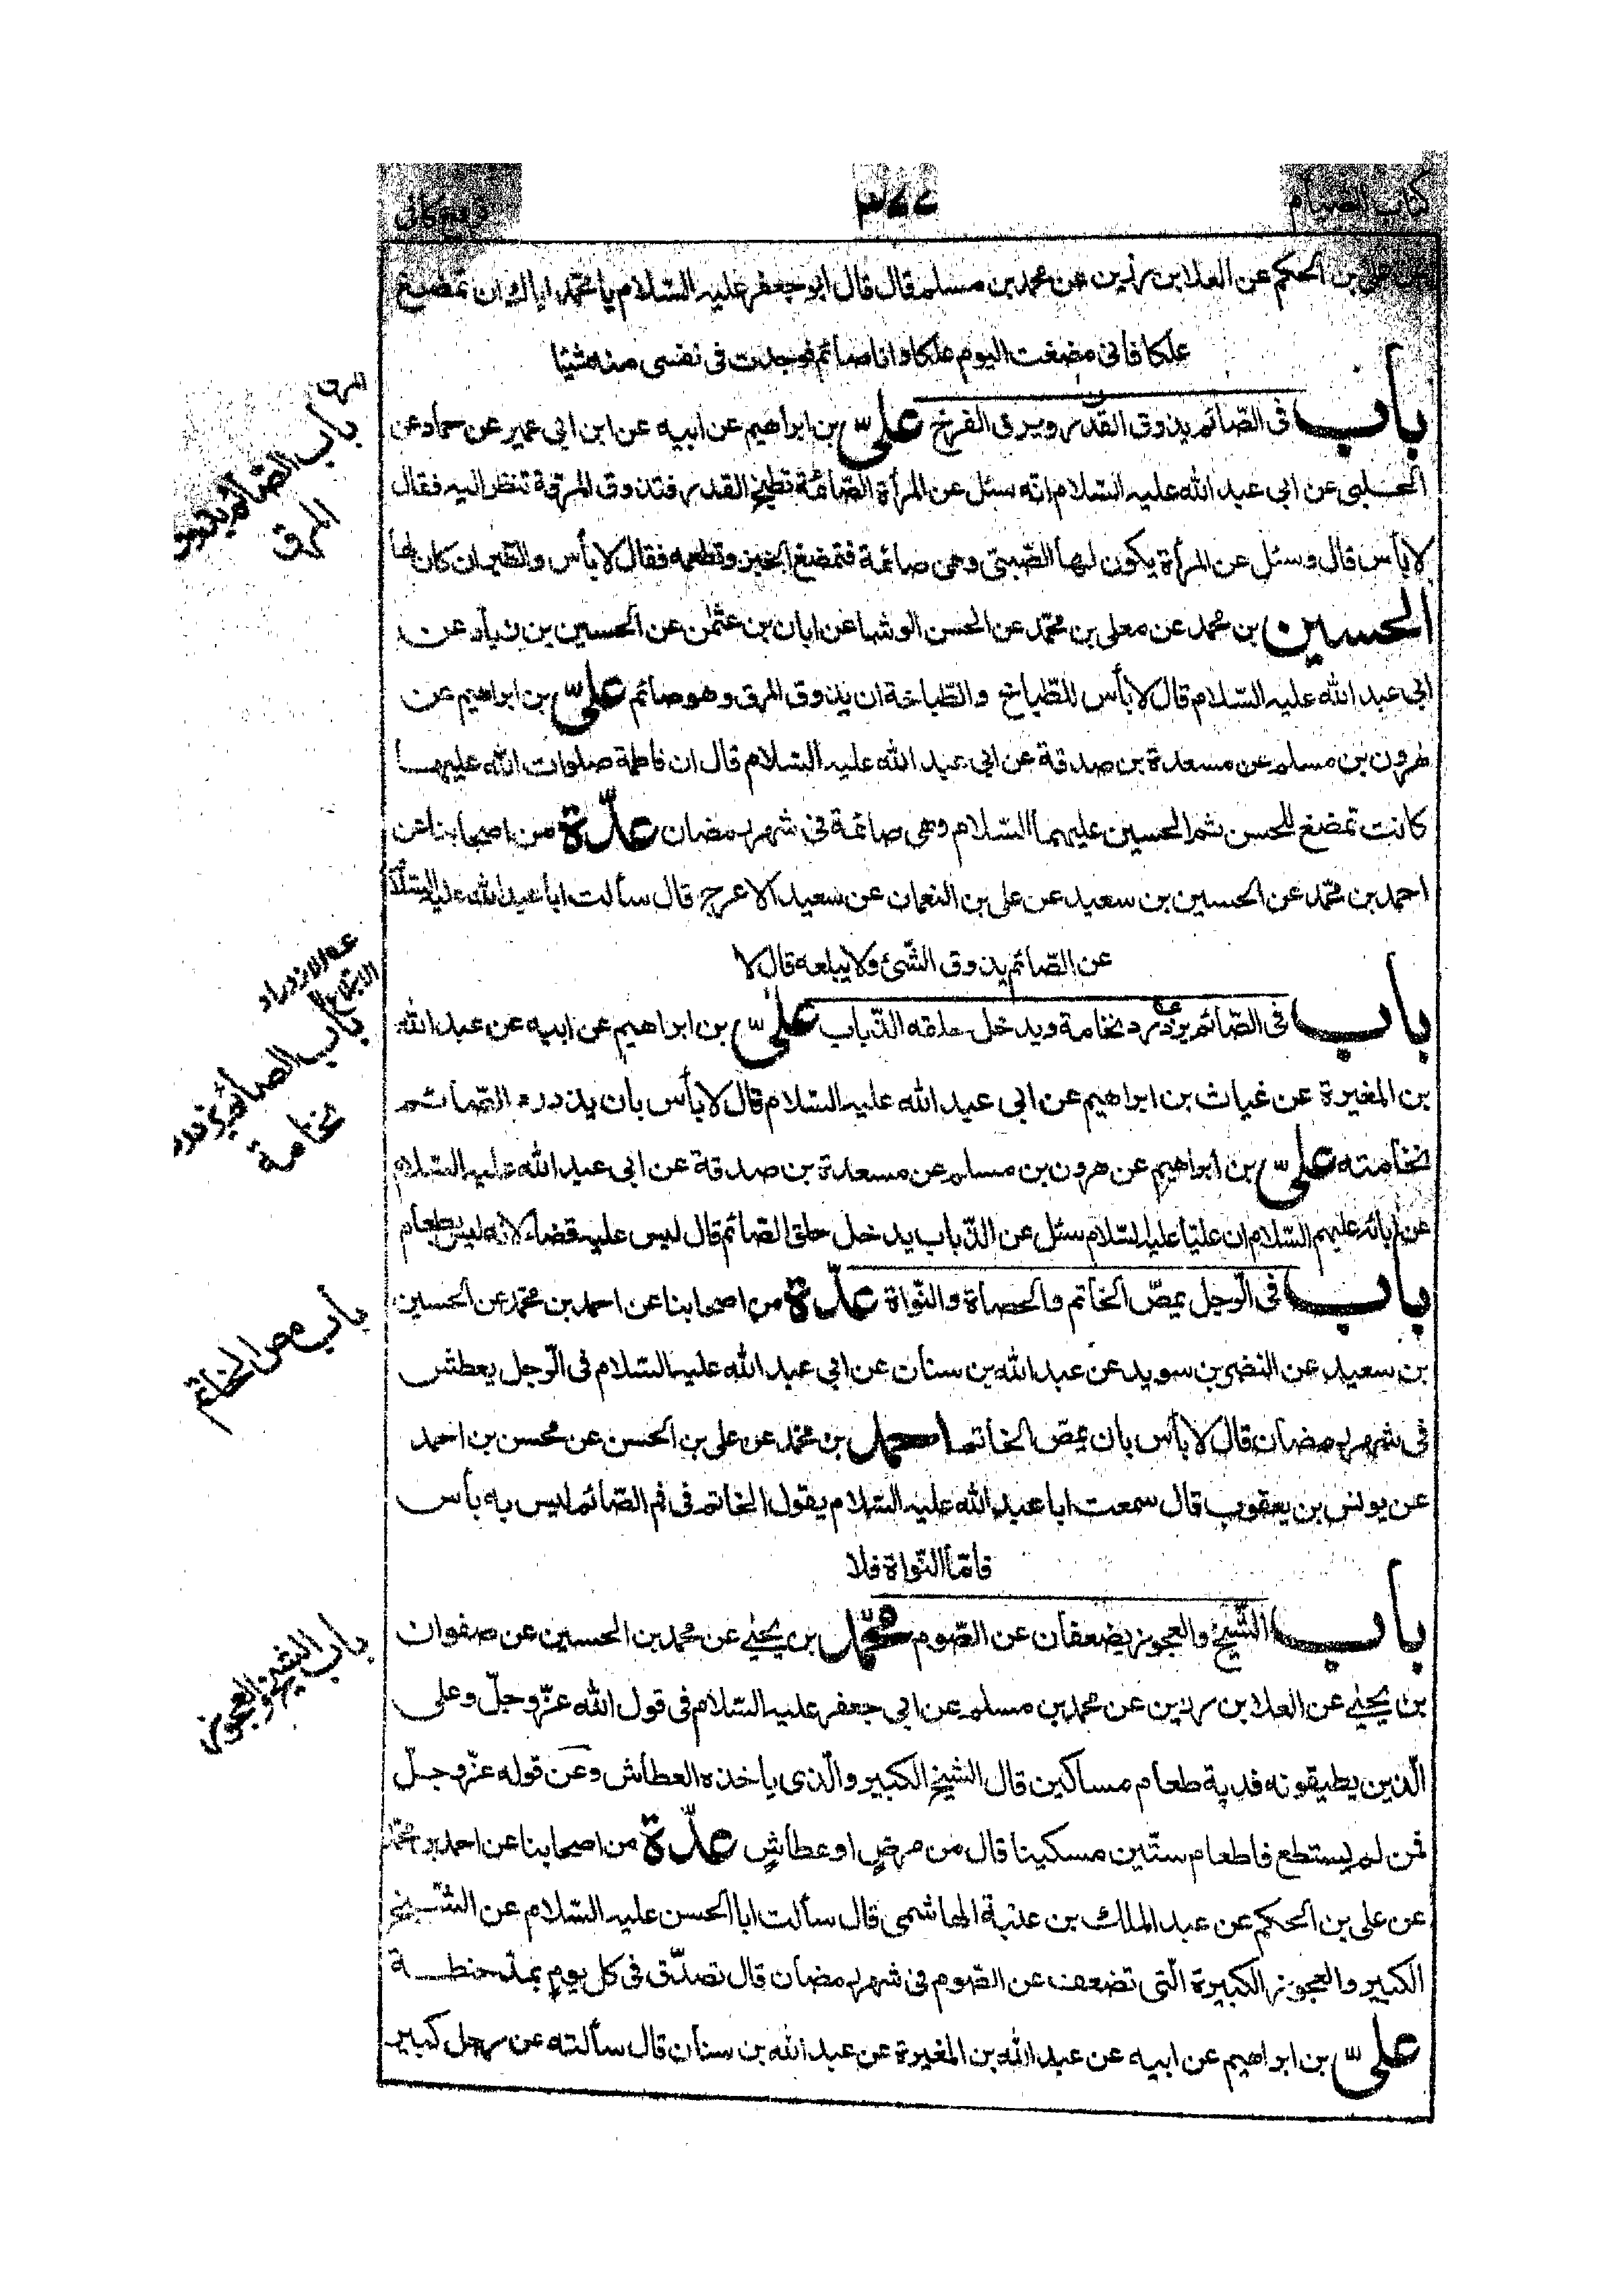 كتاب الصيام
٣٧٧
فروع كافى
عن على بن الحكم عن العلا بن رزين عن محمد بن مسلم قال قال ابو جعفر عليه السّلام يا محمّد اياك ان تمضغ
علكا فانى مضغت اليوم علكا وانا صائم فوجدت فى نفسى منه شيئا
باب فى الصّائم يذوق القدر ويزق الفرخ علىّ بن ابراهيم عن ابيه عن ابن ابى عمير عن حماد عن
الحلبى عن ابى عبد الله عليه السّلام انّه سئل عن المرأة الصّائمة تطبخ القدر فتذوق المرقة تنظر اليه فقال
لا بأس قال وسئل عن المرأة يكون لها الصّبىّ وهى صائمة فتمضغ الخبز وتطعمه فقال لا بأس والطّير ان كان لها
الحسين بن محمد عن معلى بن محمّد عن الحسن الوشا عن ابان بن عثمن عن الحسين بن زياد عن
ابى عبد الله عليه السّلام قال لا بأس للطّباخ والطّباخة ان يذوق المرق وهو صائم علىّ بن ابراهيم عن
هرون بن مسلم عن مسعدة بن صدقة عن ابى عبد الله عليه السّلام قال ان فاطمة صلوات الله عليها
كانت تمضغ للحسن ثم الحسين عليهما السّلام وهى صائمة فى شهر رمضان عدّة من اصحابنا عن
احمد بن محمّد عن الحسين بن سعيد عن على بن النعمان عن سعيد الاعرج قال سألت ابا عبد الله عليه السّلام
عن الصّائم يذوق الشّئ ولا يبلعه قال لا
باب فى الصّائم يزدرد نخامة ويدخل حلقه الذّباب علىّ بن ابراهيم عن ابيه عن عبد الله
بن المغيرة عن غياث بن ابراهيم عن ابى عبد الله عليه السّلام قال لا بأس بأن يزدرد الصّائم
نخامته علىّ بن ابراهيم عن هرون بن مسلم عن مسعدة بن صدقة عن ابى عبد الله عليه السّلام
عن آبائه عليهم السّلام ان عليّا عليه السّلام سئل عن الذّباب يدخل حلق الصّائم قال ليس عليه قضاء لانّه ليس بطعام
باب فى الرّجل يمصّ الخاتم والحصاة والنّواة عدّة من اصحابنا عن احمد بن محمّد عن الحسين
بن سعيد عن النضر بن سويد عن عبد الله بن سنان عن ابى عبد الله عليه السّلام فى الرّجل يعطش
فى شهر رمضان قال لا بأس بان يمصّ الخاتم احمد بن محمّد عن على بن الحسن عن محسن بن احمد
عن يونس بن يعقوب قال سمعت ابا عبد الله عليه السّلام يقول الخاتم فى فم الصّائم ليس به بأس
فأمّا النّواة فلا
باب الشّيخ والعجوز يضعفان عن الصّوم محمّد بن يحيى عن محمد بن الحسين عن صفوان
بن يحيى عن العلا بن رزين عن محمد بن مسلم عن ابى جعفر عليه السّلام فى قول الله عزّ وجلّ وعلى
الّذين يطيقونه فدية طعام مساكين قال الشيخ الكبير والّذى يأخذه العطاش وعن قوله عزّ وجلّ
فمن لم يستطع فاطعام ستّين مسكينا قال من مرض او عطاش عدّة من اصحابنا عن احمد بن محمّد
عن على بن الحكم عن عبد الملك بن عتبة الهاشمى قال سألت ابا الحسن عليه السّلام عن الشّيخ
الكبير والعجوز الكبيرة الّتى تضعف عن الصّوم فى شهر رمضان قال تصدّق فى كل يوم بمدّ حنطة
علىّ بن ابراهيم عن ابيه عن عبد الله بن المغيرة عن عبد الله بن سنان قال سألته عن رجل كبير
المرق
باب الصّائم يذوق
المرق
عه الازدراد
الابتلاع
باب الصائم يزدرد
نخامة
باب مص الخاتم
باب الشيخ والعجوز